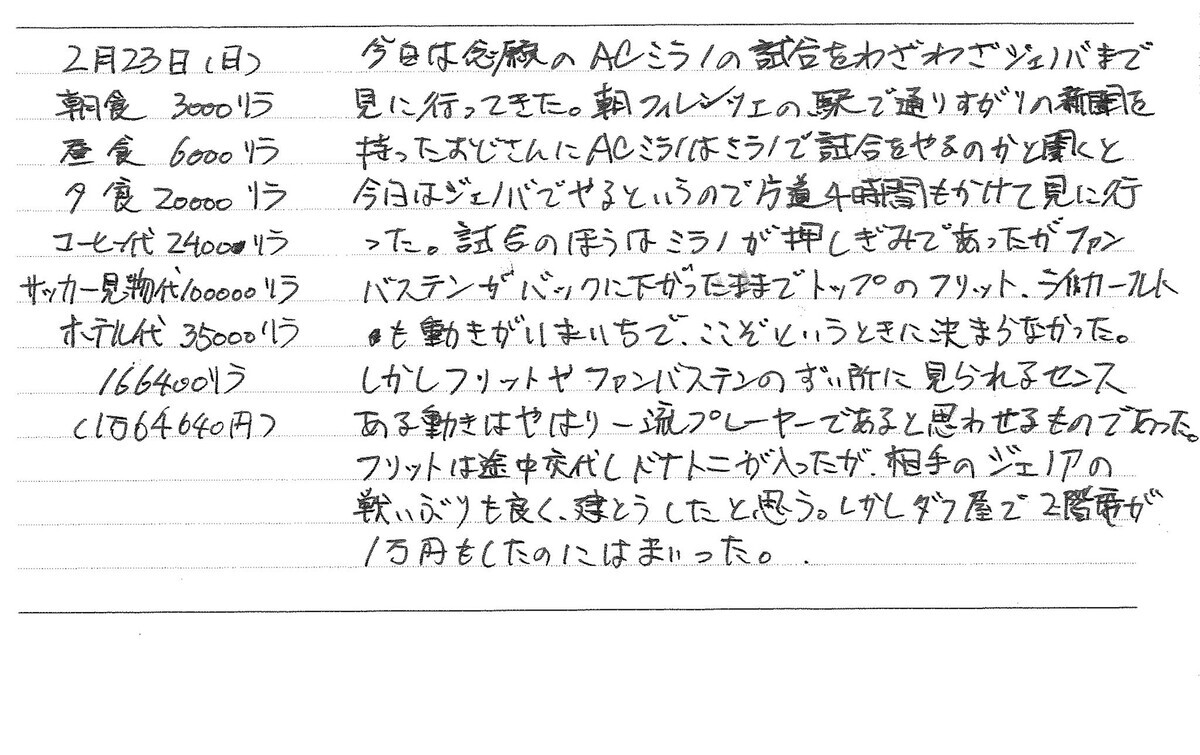 2月23日(日)
朝食 3000リラ
昼食 6000リラ
夕食 20000リラ
コーヒー代 2400リラ
サッカー見物代100000リラ
ホテル代 35000リラ
166400リラ
(1万64640円)
今日は念願のACミラノの試合をわざわざジェノバまで
見に行ってきた。朝フィレンツェの駅で通りすがりの新聞を
持ったおじさんにACミラノはミラノで試合をやるのかと聞くと
今日はジェノバでやるというので片道4時間もかけて見に行
った。試合のほうはミラノが押しぎみであったがファン
バステンがバックに下がったままでトップのフリット、ライカールト
も動きがいまいちで、ここぞというときに決まらなかった。
しかしフリットやファンバステンのずい所に見られるセンス
ある動きはやはり一流プレーヤーであると思わせるものであった。
フリットは途中交代しドナトニが入ったが、相手のジェノアの
戦いぶりも良く、建とうしたと思う。しかしダフ屋で2階席が
1万円もしたのにはまいった。